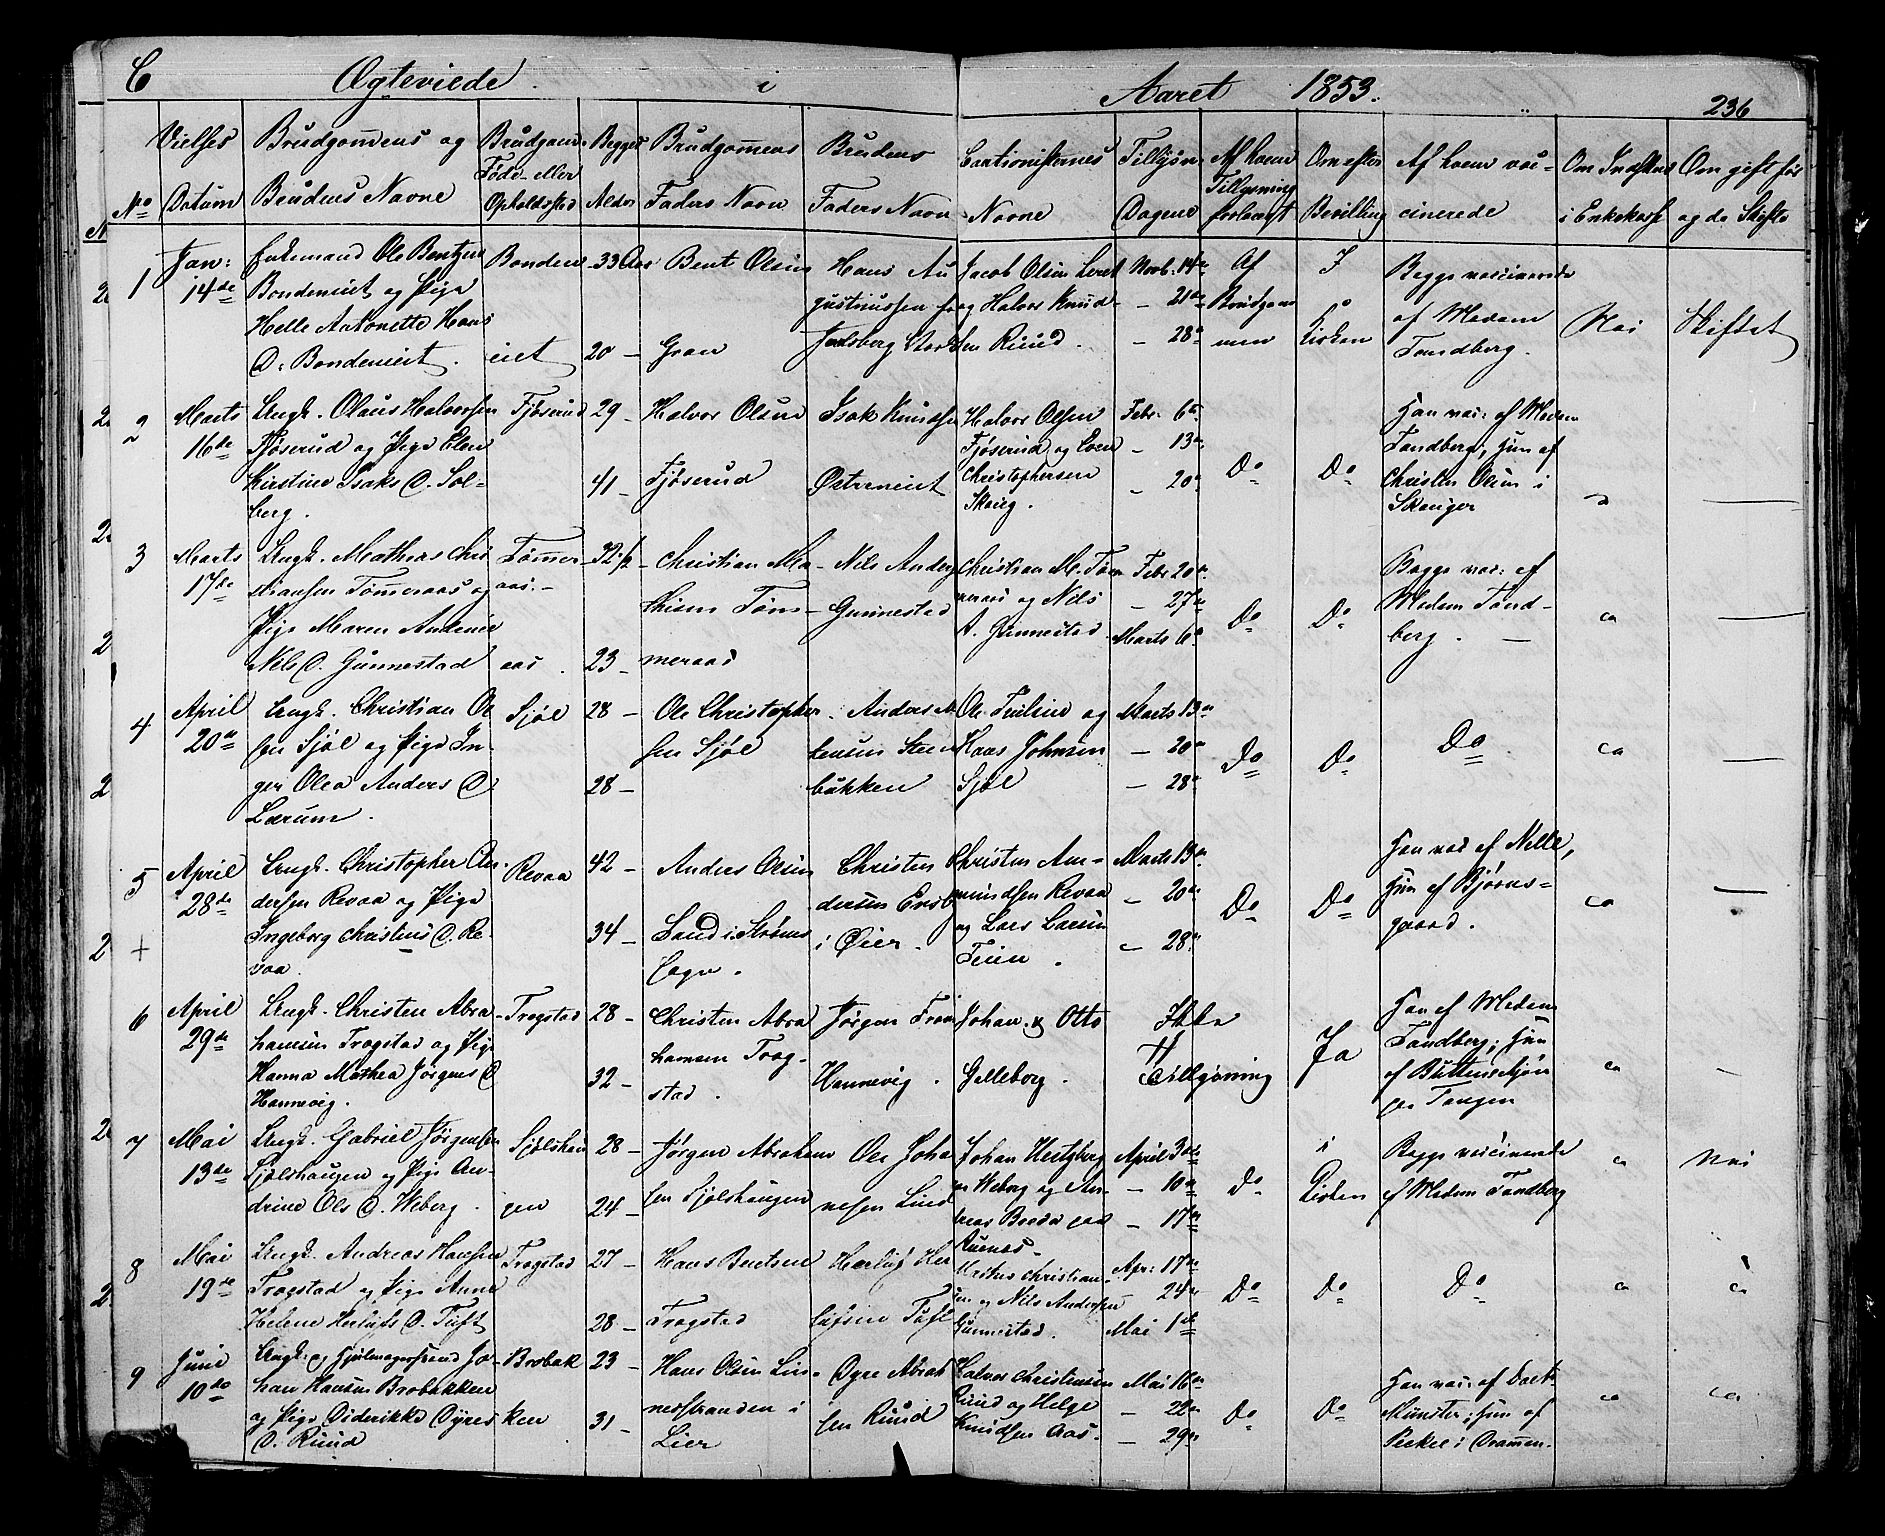 C Ægteviede i Aaret 1853. 236
No
Vielses
Datum
Brudgommens og
Brudens Navne
Brudgom.
Føde- eller
Opholdssted
Begges
Alder
Brudgommens
Faders Navn
Brudens
Faders Navn
Cautionisternes
Navne
Tillysn.
Dagene
Af hvem
Tillysning
forlangt
Om efter
Bevilling
Af hvem vac-
cinerede
Om Indskud
i Enkekasse
Om gift før
og da Skifte
1
Jan:
14de
Enkemand Ole Bentzen
Bondeneiet og Pige
Helle Antonette Hans
D. Bondeneiet.
Bonden
eiet
33 Aar
20 -
Bent Olsen
Gran
Hans Au
gustinussen fra
Jarlsberg
Jacob Olsen
og Halvor Knud-
sen Ruud.
Novb. 14de
- 21de
- 28de
Af
Brudgom
men
I
Kirken
Begge vaccinerede
af Madam
Tandberg.
Nei
Skiftet
2
Marts
16de
Ungk. Olaus Halvorsen
Fjøserud og Pige Elen
Kirstine Isaks D. Sol-
berg.
Fjøserud
29 -
41 -
Halvor Olsen
Fjøserud
Isak Knudsen
Østreneiet
Halvor Olsen
Fjøserud og Even
Christophersen
Skoug.
Febr. 6te
- 13de
- 20de
Do
Do
Han vac: af Madam
Tandberg, hun af
Christen Olsen i
Skouger
3
Marts
17de
Ungk. Mathias Chri
stiansen Tømeraas og
Pige Maren Andenie
Nils D. Gunnestad
Tømer-
aas
32 1/2
23 -
Christian Ma
thisen Tøm-
meraas
Nils Anders
Gunnestad
Christian M. Tøm
meraas og Nils
A. Gunnestad.
Febr 20de
- 27de
Marts 6te
Do
Do
Begge vac: af
Madam Tand-
berg. -
4
April
20de
Ungk. Christian Ol
sen Sjøl og Pige In-
ger Olea Anders D
Lærum.
Sjøl
28 -
28 -
Ole Christopher
sen Sjøl
Anders
Steen
bakken
Ole og
Hans Johnsen
Sjøl
Marts 13de
- 20de
- 28de
Do
Do
Do
5
+
April
28de
Ungk. Christopher An-
dersen Revaa og Pige
Ingeborg Christens D. Re-
vaa.
Revaa
42 -
34 -
Anders Olsen
Sand i Strøms
Sogn.
Christen
dersen
i Øier.
Christen Am-
mundsen Revaa
og Lars Larsen
Marts 13de
- 20de
- 28de
Do
Do
Han vac af Nille,
Hun af Bjørns-
gaard.
6
April
29de
Ungk. Christen Abra
hamsen Trogstad og Pige
Hanna Mathea Jørgens D
Hannevig.
Trogstad
28 -
32 -
Christen Abra
hamsen Trog-
stad.
Jørgen
Hannevig.
Johan & Otto
Gilleborg.
Ikke
Tillysning
Ja
Han af Madam
Tandberg; Hun
af
per Tangen
7
Mai
13de
Ungk. Gabriel Jørgensen
Sjølshaugen og Pige An-
drine Ols D. Weberg.
Sjølshau
gen
28 -
24 -
Jørgen Abraham
sen Sjølshaugen
Ole Joha
nesen Lind
Johan Hertzberg
Weberg og An-
dreas Breda paa
Ruenæs
April 3die
- 10de
- 17de
Do
i
Kirken
Begge vaccinerede
af Madam Tandberg
Nei
8
Mai
19de
Ungk. Andreas Hansen
Trogstad og Pige Anne
Helene Herlufs D. Tuft
Trogstad
27 -
28 -
Hans Bentsen
Trogstad
Herluf Her
lufsen Tuft
Christian-
sen og Nils Andersen
Gunnestad.
Apr: 17de
24de
Mai 1ste
Do
Do
Do
9
Juni
10de
Ungk: og Hjulmagersvend Jo-
han Hansen Brobakken
og Pige Diderikke Dyres
D. Ruud
Brobak
ken
23 -
31 -
Hans Olsen Lin-
nesstranden i
Lier
Dyre Abrah
sen Ruud
Halvor Christensen
Ruud og Helge
Knudsen Aas.
Mai 16de
- 22de
- 29de
Do
Do
Han vac: af Doct.
Münster; hun af
i Dramen.